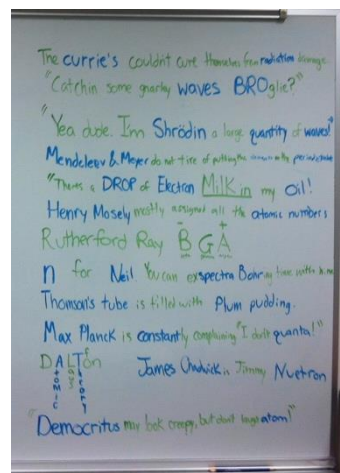 The currie's couldn't cure themselves from radiation damage
"Catchin some gnarley waves BROglie?"
"Yea dude. Imm Shrödin a large quantity of waves!"
Mendeleev & Meyer do not tire of putting the elements on the periodic table
"Theres a DROP of Electron Milk in my Oil!
Henry Mosely mostly assigned all the atomic numbers
Rutherford Ray B⁻ G A⁺
n for Neil You can exspectra Bohring time with
Thomson's tube is filled with Plum pudding.
Max Planck is constantly complaining "I don't quanta!"
DALTon James Chadwick is Jimmy Nuetron
Atomic
Law
Theory
of
"Democritus may look creepy, but dont atom!"